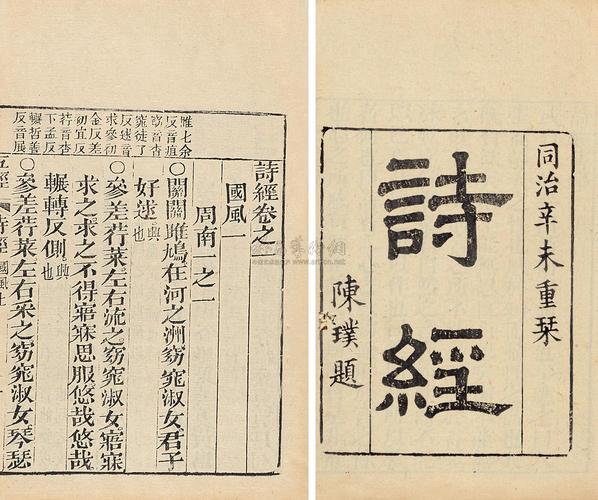 同治辛未重栞
詩經
陳璞題
詩經卷之
國風一
周南一之一
〇關關雎鳩在河之洲窈窕淑女君子
好逑興也
〇參差荇菜左右流之窈窕淑女寤寐
求之求之不得寤寐思服悠哉悠哉
輾轉反側興也
〇參差荇菜左右采之窈窕淑女琴瑟
雎七余
反音疽
窈音杳
窕徒了
反逑音
求參初
金反差
初宜反
荇音杏
下孟反
輾哲善
反音展
詩經國風